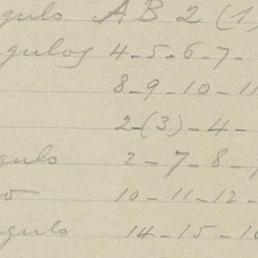 gulo A B 2 (1)
gulos 4-5-6-7-
8-9-10-11
2-(3)-4-
gulo 2-7-8-
o 10-11-12-
gulo 14-15-16